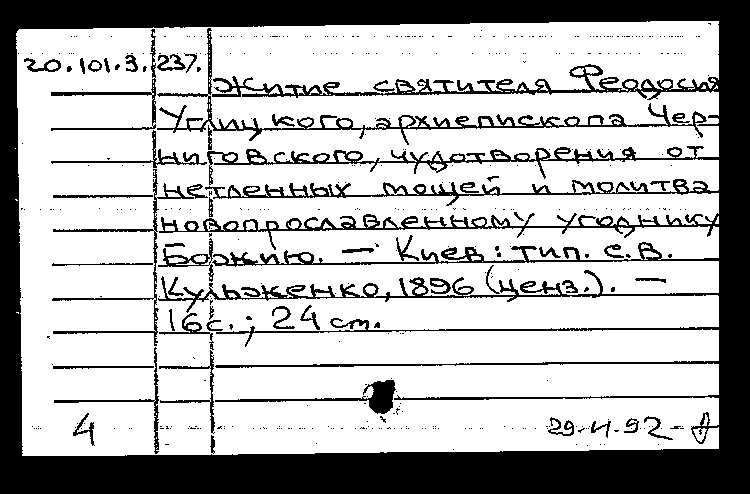 20.101.3.237.
Житие святителя Феодосия
Углицкого, архиепископа Чер-
ниговского, чудотворения от
нетленных мощей и молитва
новопрославленному угоднику
Божию. — Киев: тип. С.В.
Кульженко, 1896 (ценз.). —
16с.; 24 cm.
4